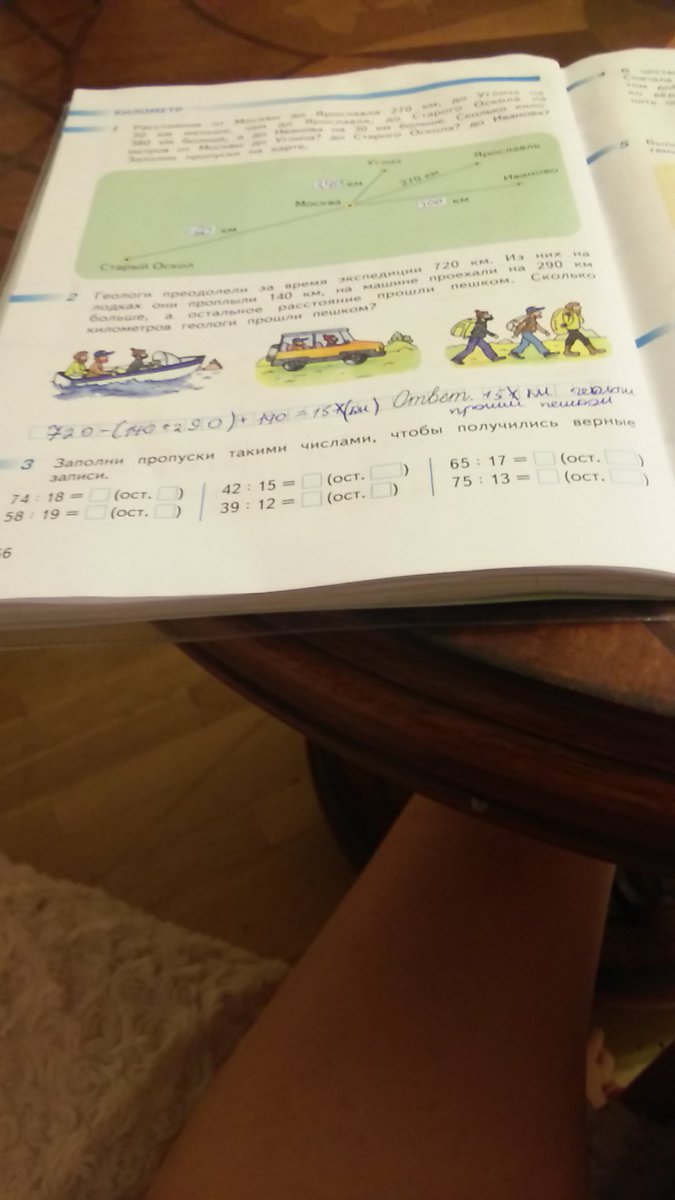 КИЛОМЕТР
1 Расстояние от Москвы до Ярославля 270 км, до Углича на
30 км меньше, чем до Ярославля, до Старого Оскола на
380 км больше, а до Иванова на 30 км больше. Сколько кило-
метров от Москвы до Углича? до Старого Оскола? до Иванова?
Заполни пропуски на карте.
Углич
Ярославль
км
270 км
Иваново
Москва
300 км
км
Старый Оскол
2 Геологи преодолели за время экспедиции 720 км. Из них на
лодках они проплыли 140 км, на машине проехали на 290 км
больше, а остальное расстояние прошли пешком. Сколько
километров геологи прошли пешком?
720-(140+290)+140=15 (км) Ответ. 15 км
прошли пешком
3 Заполни пропуски такими числами, чтобы получились верные
записи.
74 : 18 = (ост. )
42 : 15 = (ост. )
65 : 17 = (ост. )
58 : 19 = (ост. )
39 : 12 = (ост. )
75 : 13 = (ост. )
4
5